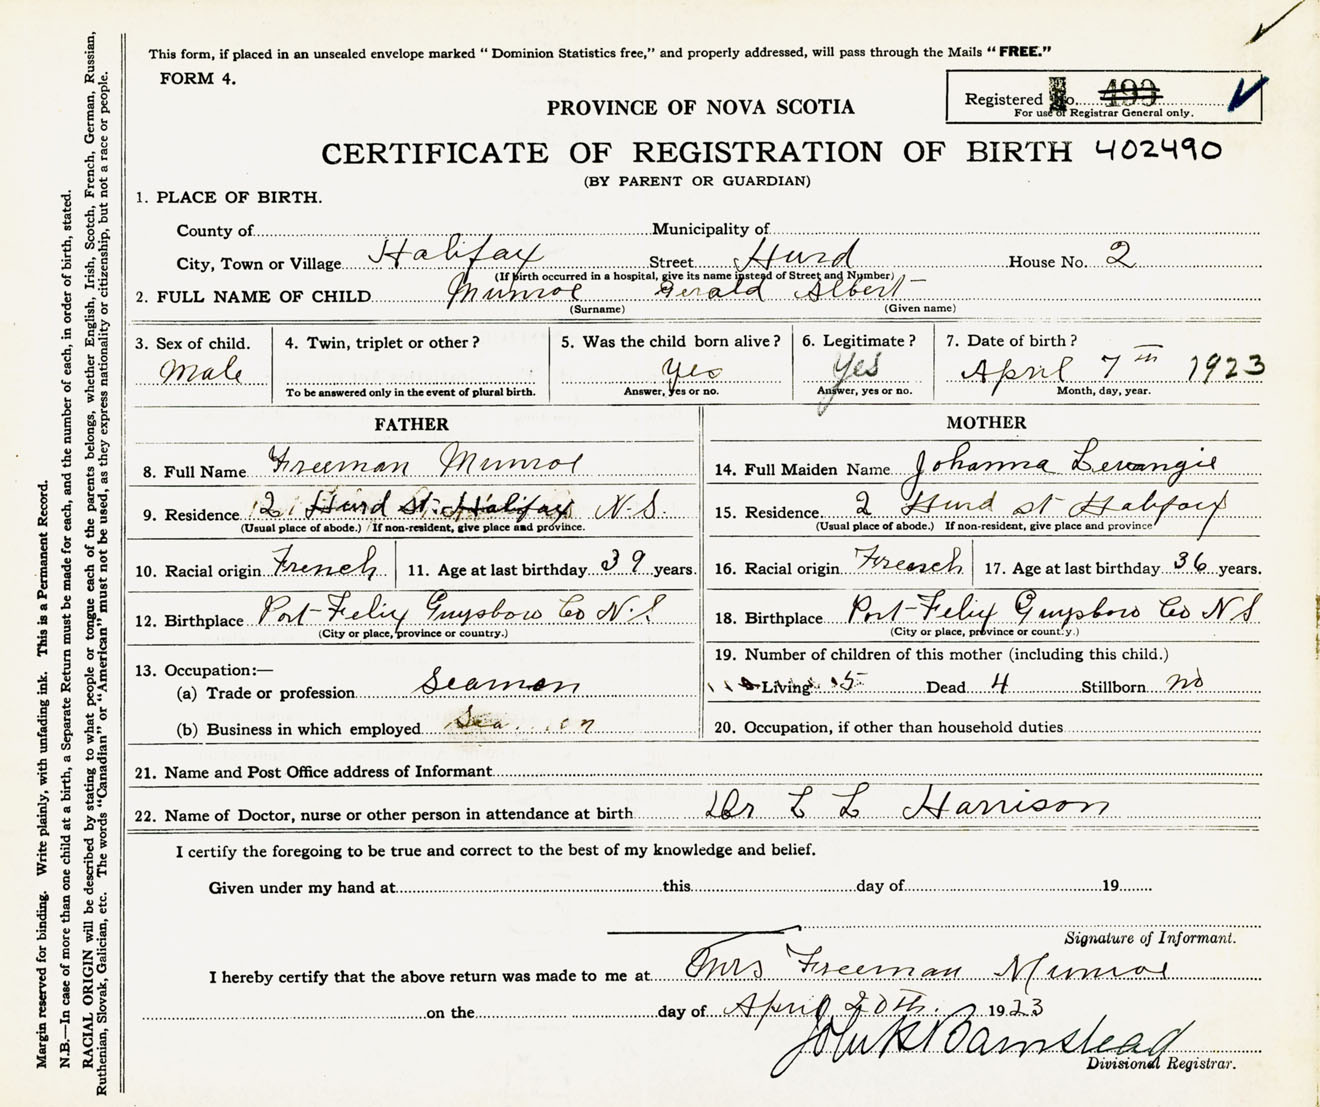 This form, if placed in an unsealed envelope marked "Dominion Statistics free," and properly addressed, will pass through the Mails "FREE."
FORM 4.
Registered No. 499
For use of Registrar General only.
PROVINCE OF NOVA SCOTIA
CERTIFICATE OF REGISTRATION OF BIRTH 402490
(BY PARENT OR GUARDIAN)
1. PLACE OF BIRTH.
County of Municipality of
City, Town or Village Halifax Street Hurd House No. 2
(If birth occurred in a hospital, give its name instead of Street and Number)
2. FULL NAME OF CHILD Munroe Gerald Albert
(Surname) (Given name)
3. Sex of child. 4. Twin, triplet or other? 5. Was the child born alive? 6. Legitimate? 7. Date of birth?
Male yes Yes April 7th 1923
To be answered only in the event of plural birth. Answer, yes or no. Answer, yes or no. Month, day, year.
FATHER MOTHER
8. Full Name Freeman Munroe 14. Full Maiden Name Johanna Levangie
9. Residence 2 Hurd st. Halifax N.S. 15. Residence 2 Hurd st Halifax
(Usual place of abode.) If non-resident, give place and province. (Usual place of abode.) If non-resident, give place and province
10. Racial origin French 11. Age at last birthday 39 years. 16. Racial origin French 17. Age at last birthday 36 years.
12. Birthplace Port-Felix Guysboro Co N.S 18. Birthplace Port-Felix Guysboro Co N S
(City or place, province or country.) (City or place, province or country.)
13. Occupation:— 19. Number of children of this mother (including this child.)
(a) Trade or profession Seamon Living 5 Dead 4 Stillborn no
(b) Business in which employed 20. Occupation, if other than household duties
21. Name and Post Office address of Informant
22. Name of Doctor, nurse or other person in attendance at birth Dr L L Harrison
I certify the foregoing to be true and correct to the best of my knowledge and belief.
Given under my hand at this day of 19
Signature of Informant.
I hereby certify that the above return was made to me at Mrs Freeman Munroe
on the day of April 20th. 1923
John K Barnstead
Divisional Registrar.
Margin reserved for binding. Write plainly, with unfading ink. This is a Permanent Record.
N.B.—In case of more than one child at a birth, a Separate Return must be made for each, and the number of each, in order of birth, stated.
RACIAL ORIGIN will be described by stating to what people or tongue each of the parents belongs, whether English, Irish, Scotch, French, German, Russian,
Ruthenian, Slovak, Galician, etc. The words "Canadian" or "American" must not be used, as they express nationality or citizenship, but not a race or people.